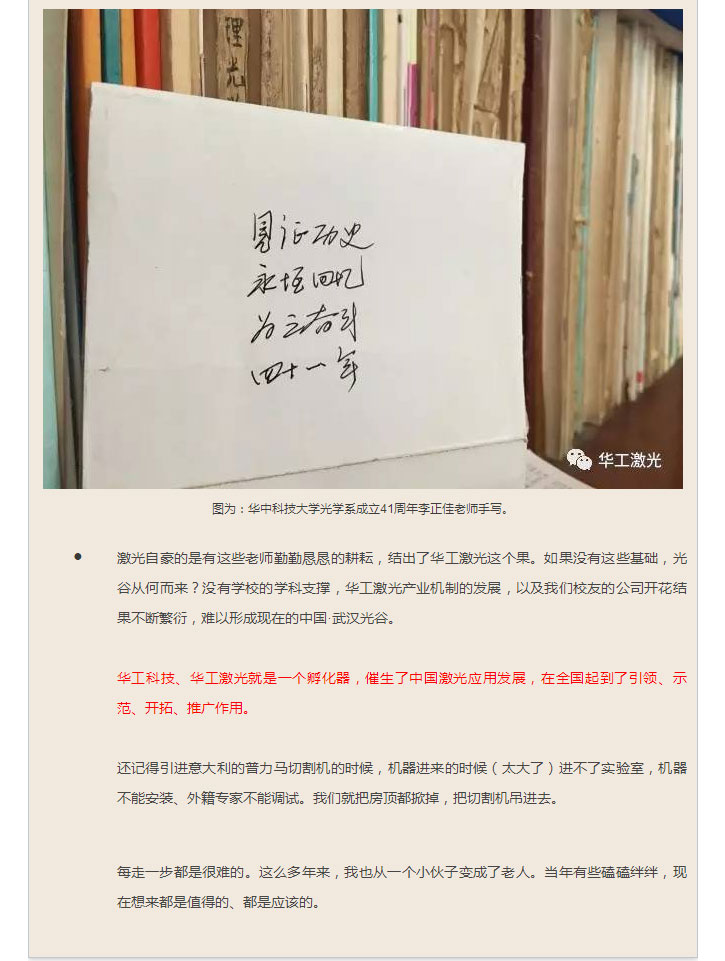 理光
见证历史
永恒回忆
为之奋斗
四十一年
华工激光
图为:华中科技大学光学系成立41周年李正佳老师手写。
激光自豪的是有这些老师勤勤恳恳的耕耘,结出了华工激光这个果。如果没有这些基础,光
谷从何而来?没有学校的学科支撑,华工激光产业机制的发展,以及我们校友的公司开花结
果不断繁衍,难以形成现在的中国·武汉光谷。
华工科技、华工激光就是一个孵化器,催生了中国激光应用发展,在全国起到了引领、示
范、开拓、推广作用。
还记得引进意大利的普力马切割机的时候,机器进来的时候(太大了)进不了实验室,机器
不能安装、外籍专家不能调试。我们就把房顶都掀掉,把切割机吊进去。
每走一步都是很难的。这么多年来,我也从一个小伙子变成了老人。当年有些磕磕绊绊,现
在想来都是值得的、都是应该的。